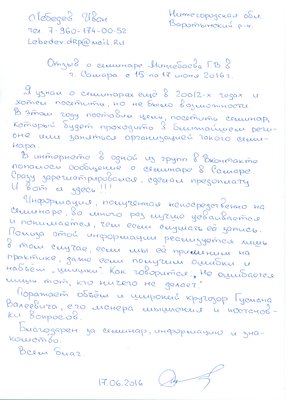 Лебедев Иван
тел 7-960-174-00-52
Lebedev.dkp@mail.ru
Нижегородская обл.
Воротынский р-н
Отзыв о семинаре Минебаева ГВ в
г Самара с 15 по 17 июня 2016 г.
Я узнал о семинарах ещё в 20012-х годах и
хотел посетить, но не было возможности
В этом году поставил цель, посетить семинар,
который будет проходить в ближайшем реги-
оне или заняться организацией такого семи-
нара.
В интернете в одной из групп в Вконтакте
попалось сообщение о семинаре в Самаре
Сразу зарегистрировался, сделал предоплату
И вот я здесь!!!
Информация, полученная непосредственно на
семинаре, во много раз лучше усваивается
и понимается, чем если слушать её запись.
Польза этой информации реализуется лишь
в том случае, если мы её применим на
практике, даже если получим ошибки и
набьём "шишки". Как говорится, "Не ошибается
лишь тот, кто ничего не делает"
Поражает объём и широкий кругозор Густава
Валеевича, его манера мышления и постанов-
ки вопросов.
Благодарен за семинар, информацию и зна-
комство.
Всем благ
17.06.2016